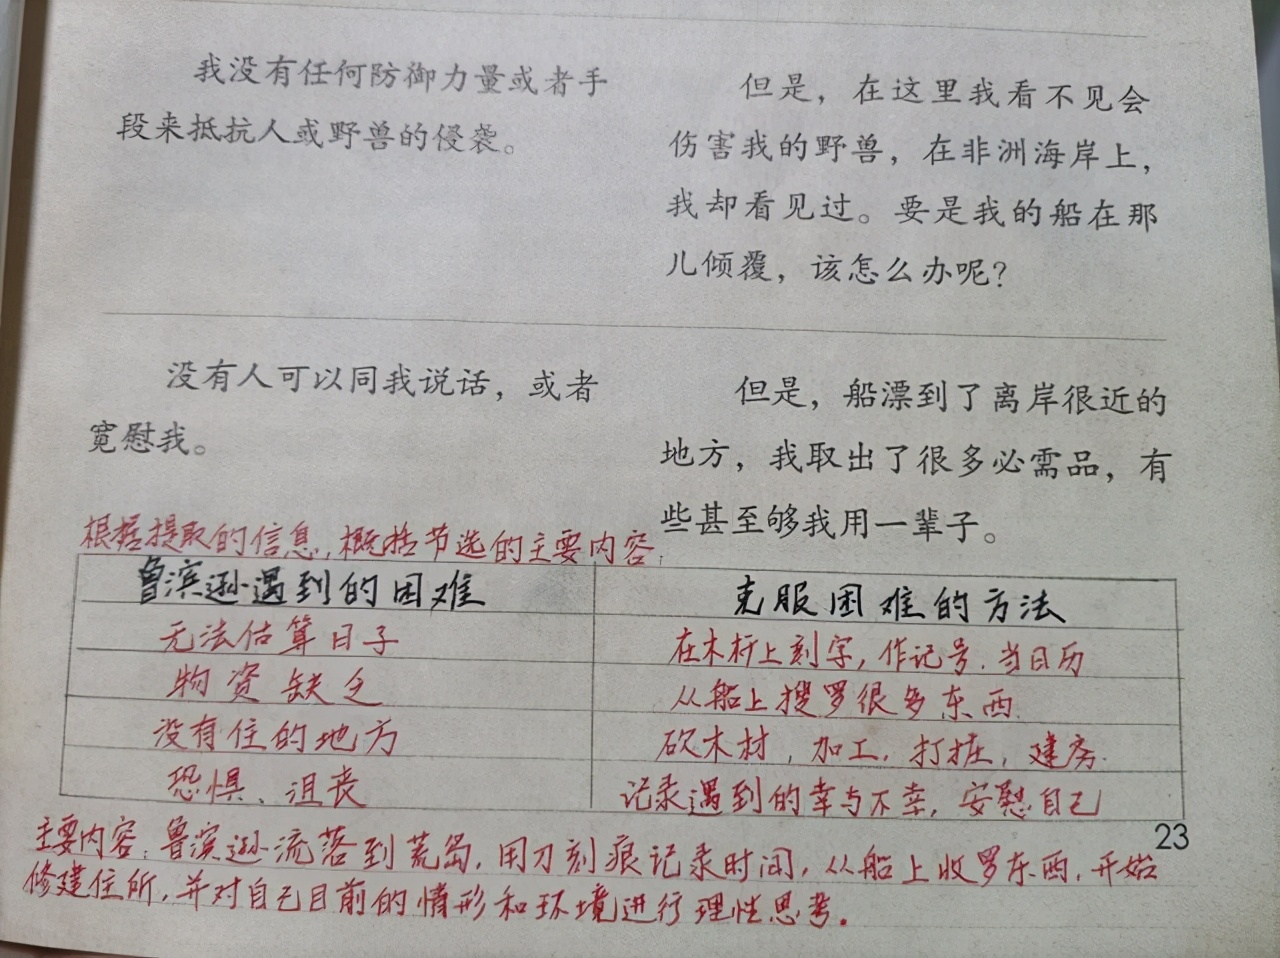 我没有任何防御力量或者手
段来抵抗人或野兽的侵袭。
但是，在这里我看不见会
伤害我的野兽，在非洲海岸上，
我却看见过。要是我的船在那
儿倾覆，该怎么办呢？
没有人可以同我说话，或者
宽慰我。
但是，船漂到了离岸很近的
地方，我取出了很多必需品，有
些甚至够我用一辈子。
根据提取的信息，概括节选的主要内容：
鲁滨逊遇到的困难
克服困难的方法
无法估算日子
在木杆上刻字，作记号，当日历
物资缺乏
从船上搜罗很多东西
没有住的地方
砍木材，加工，打桩，建房
恐惧、沮丧
记录遇到的幸与不幸，安慰自己
23
主要内容：鲁滨逊流落到荒岛，用刀刻痕记录时间，从船上收罗东西，开始
修建住所，并对自己目前的情形和环境进行理性思考。